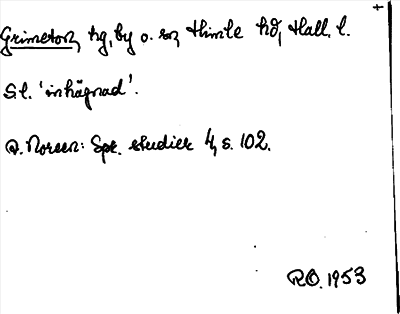 Grimeton, hg, by o. sn, Himle hd, Hall. l.
S.l. 'inhägnad'.
A. Noreen: Spr. studier 4, s. 102.
R.O. 1953